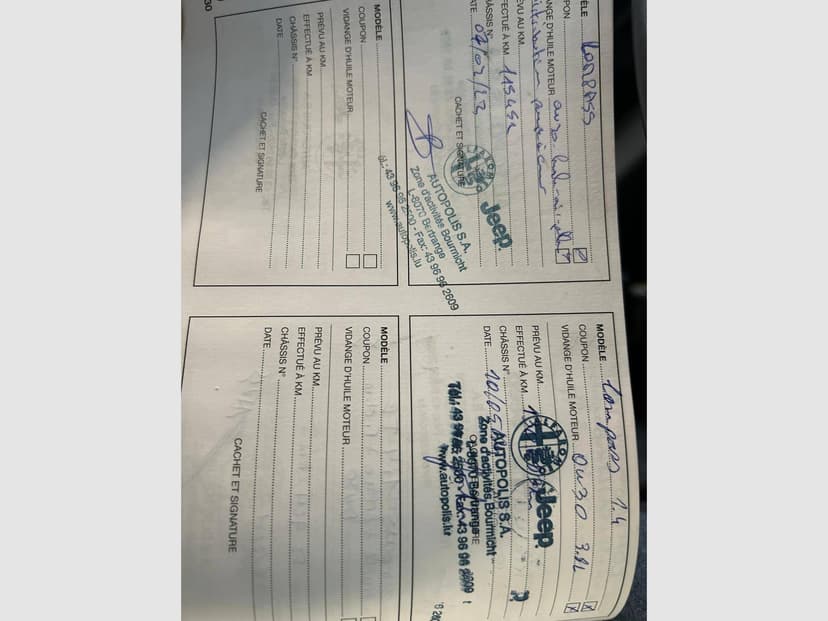 MODÈLE Compass
COUPON
VIDANGE D'HUILE MOTEUR
PRÉVU AU KM
EFFECTUÉ À KM
CHÂSSIS N°
DATE 07/02/23
CACHET ET SIGNATURE
Jeep
AUTOPOLIS S.A.
Zone d'activités Bourmicht
L-8070 Bertrange
tél.: 43 96 96 2500 - Fax: 43 96 96 2609
www.autopolis.lu
MODÈLE Compass 1.4
COUPON
VIDANGE D'HUILE MOTEUR 0W30 3.8L
PRÉVU AU KM
EFFECTUÉ À KM
CHÂSSIS N°
DATE
Jeep
AUTOPOLIS S.A.
Zone d'activités Bourmicht
L-8070 Bertrange
Tél.: 43 96 96 2500 - Fax: 43 96 96 2609
www.autopolis.lu
MODÈLE
COUPON
VIDANGE D'HUILE MOTEUR
PRÉVU AU KM
EFFECTUÉ À KM
CHÂSSIS N°
DATE
CACHET ET SIGNATURE
MODÈLE
COUPON
VIDANGE D'HUILE MOTEUR
PRÉVU AU KM
EFFECTUÉ À KM
CHÂSSIS N°
DATE
CACHET ET SIGNATURE
30